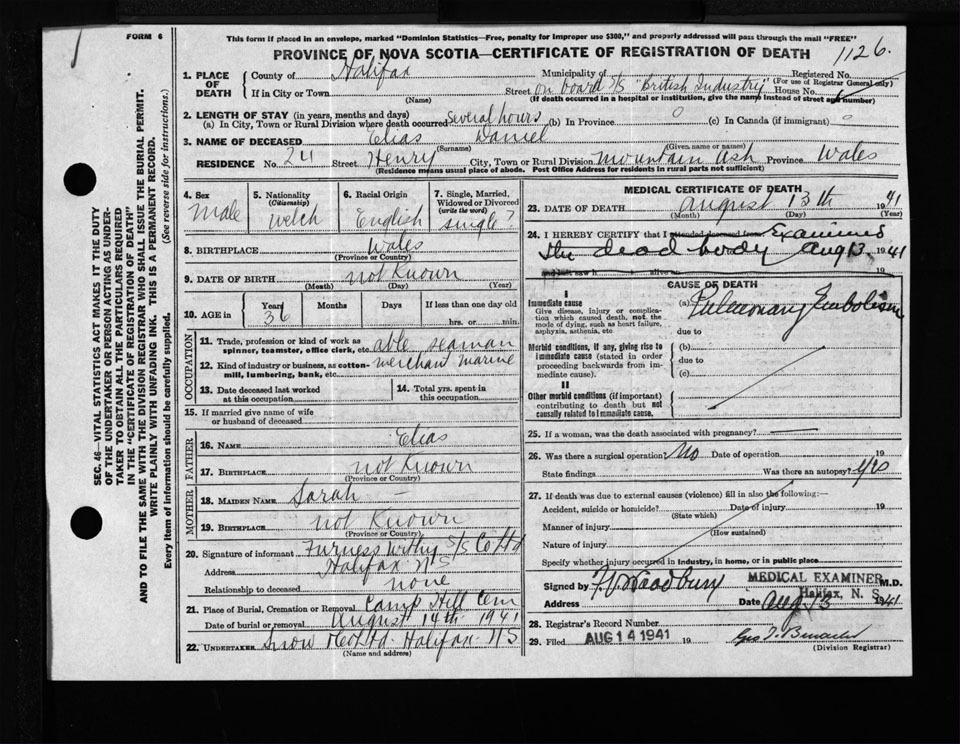 FORM 6
This form if placed in an envelope, marked "Dominion Statistics—Free, penalty for improper use $300," and properly addressed will pass through the mail "FREE"
PROVINCE OF NOVA SCOTIA—CERTIFICATE OF REGISTRATION OF DEATH
1126.
1. PLACE OF DEATH
County of Halifax Municipality of Registered No.
(For use of Registrar General only)
If in City or Town Street on board S/S "British Industry" House No.
(Name) (If death occurred in a hospital or institution, give the name instead of street and number)
2. LENGTH OF STAY (in years, months and days)
(a) In City, Town or Rural Division where death occurred Several hours (b) In Province 0 (c) In Canada (if immigrant) 0
3. NAME OF DECEASED Elias Daniel
(Surname) (Given name or names)
RESIDENCE No. 24 Street Henry City, Town or Rural Division Mountain Ash Province Wales
(Residence means usual place of abode. Post Office Address for residents in rural parts not sufficient)
SEC. 46—VITAL STATISTICS ACT MAKES IT THE DUTY
OF THE UNDERTAKER OR PERSON ACTING AS UNDER-
TAKER TO OBTAIN ALL THE PARTICULARS REQUIRED
IN THE "CERTIFICATE OF REGISTRATION OF DEATH"
AND TO FILE THE SAME WITH THE DIVISION REGISTRAR WHO SHALL ISSUE THE BURIAL PERMIT.
WRITE PLAINLY WITH UNFADING INK. THIS IS A PERMANENT RECORD.
Every item of information should be carefully supplied. (See reverse side for instructions.)
4. Sex
Male
5. Nationality
(Citizenship)
Welch
6. Racial Origin
English
7. Single, Married, Widowed or Divorced
(write the word)
single?
8. BIRTHPLACE Wales
(Province or Country)
9. DATE OF BIRTH not Known
(Month) (Day) (Year)
10. AGE in Years Months Days If less than one day old
36 hrs. or min.
OCCUPATION
11. Trade, profession or kind of work as
spinner, teamster, office clerk, etc. able seaman
12. Kind of industry or business, as cotton-
mill, lumbering, bank, etc. merchant marine
13. Date deceased last worked
at this occupation
14. Total yrs. spent in
this occupation
15. If married give name of wife
or husband of deceased
FATHER
16. NAME Elias
17. BIRTHPLACE not Known
(Province or Country)
MOTHER
18. MAIDEN NAME Sarah —
19. BIRTHPLACE not Known
(Province or Country)
20. Signature of informant Furness Withy S/S Co Ltd
Address Halifax NS
Relationship to deceased none
21. Place of Burial, Cremation or Removal Camp Hill Cem
Date of burial or removal August 14th 1941
22. UNDERTAKER Snow & Co Ltd. Halifax NS
(Name and address)
MEDICAL CERTIFICATE OF DEATH
23. DATE OF DEATH August 13th 1941
(Month) (Day) (Year)
24. I HEREBY CERTIFY that I attended deceased from Examined
the dead body Aug 13, 1941
and last saw h alive on 19
CAUSE OF DEATH
I
Immediate cause
Give disease, injury or complica-
tion which caused death, not the
mode of dying, such as heart failure,
asphyxia, asthenia, etc
(a) Pulmonary Embolism
due to
Morbid conditions, if any, giving rise to
immediate cause (stated in order
proceeding backwards from im-
mediate cause).
(b)
due to
(c)
II
Other morbid conditions (if important)
contributing to death but not
causally related to immediate cause.
25. If a woman, was the death associated with pregnancy?
26. Was there a surgical operation? No Date of operation 19
State findings Was there an autopsy?
27. If death was due to external causes (violence) fill in also the following:—
Accident, suicide or homicide? Date of injury 19
(State which)
Manner of injury
(How sustained)
Nature of injury
Specify whether injury occurred in industry, in home, or in public place
Signed by F. V. Woodbury M.D.
MEDICAL EXAMINER
Halifax, N. S.
Address Date Aug 13 1941
28. Registrar's Record Number
29. Filed AUG 14 1941 19
(Division Registrar)